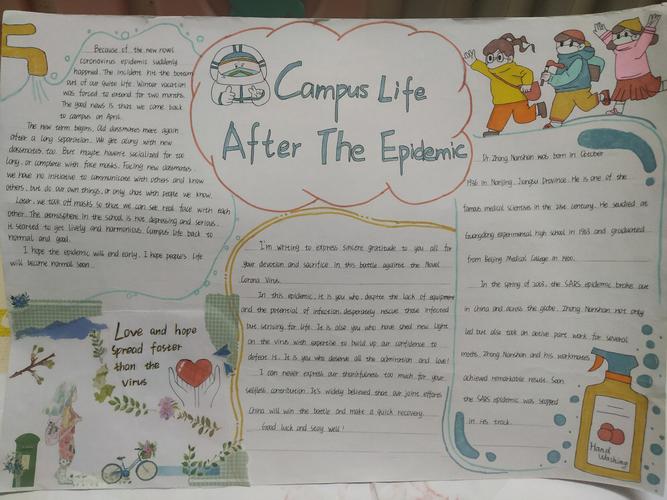 Campus Life
After The Epidemic
Because of the new novel
coronavirus epidemic suddenly
happened. The incident his the bottom
out of our quite life. Winter vacation
was forced to extend for two months.
The good news is that we come back
to campus on April.
The new term begins. Old classmates meet again
after a long separation. We get along with new
classmates too. But maybe haven't socialized for too
long, or complete with face masks. Facing new classmates
we have no initiative to communicate with others and know
others, but do our own things, or only chat with people we know.
Later, we took off masks so that we can see real face with each
other. The atmosphere in the school is not depressing and serious.
It started to get lively and harmonious. Campus life back to
normal and good.
I hope the epidemic will end early. I hope people's life
will become normal soon.
Love and hope
spread faster
than the
virus
I'm writing to express sincere gratitude to you all for
your devotion and sacrifice in this battle against the Novel
Corona Virus.
In this epidemic, it is you who, despite the lack of equipment
and the potential of infection desperately rescue those infected
but striving for life. It is also you who have shed new light
on the virus with expertise to build up our confidence to
defeat it. It is you who deserve all the admiration and love!
I can never express our thankfulness too much for your
selfless contribution. It's widely believed that our joint efforts
China will win the battle and make a quick recovery.
Good luck and stay well!
Dr Zhong Nanshan was born in October
1936 in Nanjing, Jiangsu Province. He is one of the
famous medical scientists in the 21st century. He studied at
Guangdong experimental high school in 1953 and graduated
from Beijing Medical College in 1960.
In the spring of 2003, the SARS epidemic broke out
in China and across the globe. Zhong Nanshan not only
led but also took an active part work for several
months. Zhong Nanshan and his workmates
achieved remarkable results. Soon
the SARS epidemic was stopped
in its track.
Hand
Washing